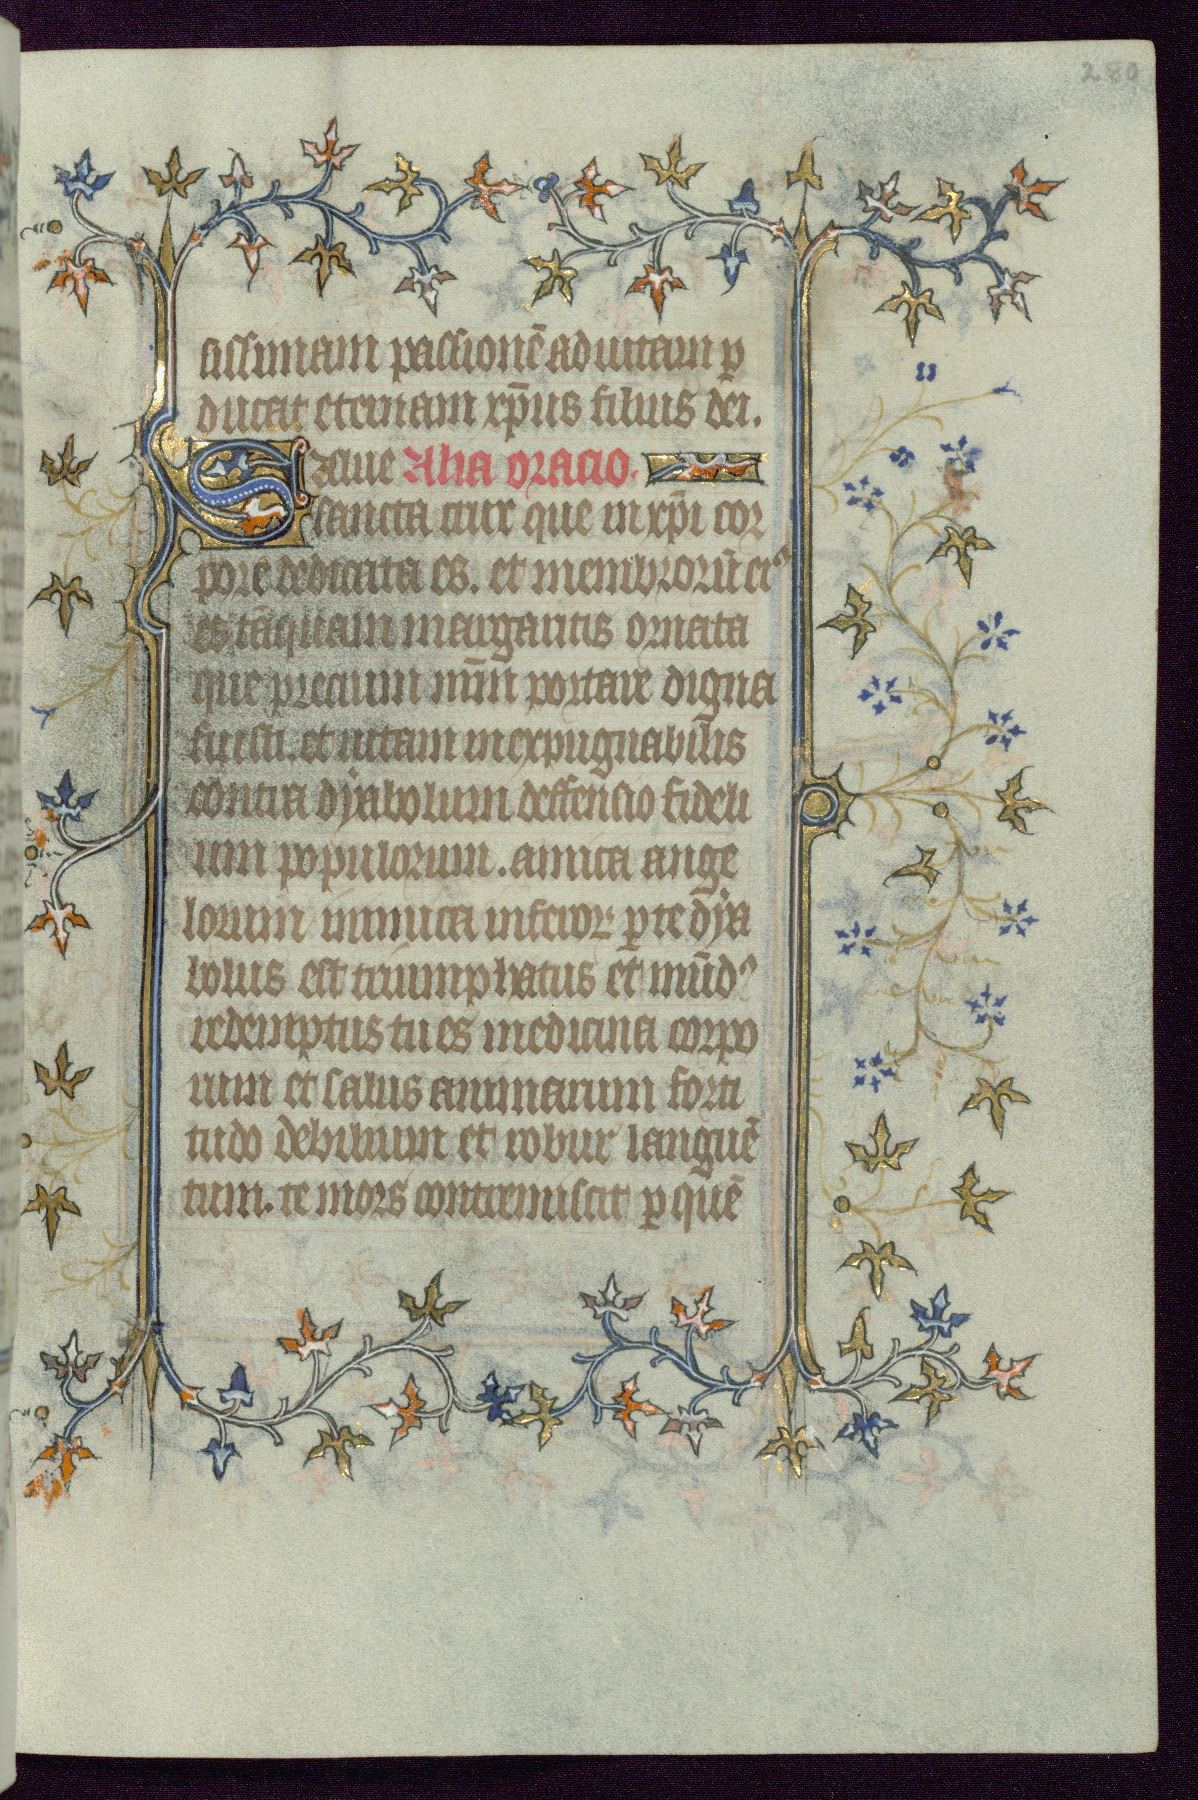 280
sissimam passionē ad uitam ꝑ
ducat eternam xp̄us filius dei.
Salue Alia oracio.
sancta crux que in xp̄i cor
pore dedicata es. et membrorū eiꝰ
es tāquam margaritis ornata
que precium mūn portare digna
fuisti. et uitam inexpugnabilis
contra dyabolum deffencio fideli
um populorum. amica ange
lorum inimica inferior ꝑ te dya
bolus est triumphatus et mūdꝰ
redemptus tu es medicina corpo
rum et salus animarum forti
tudo debilium et robur languē
tum. te mors contremiscit ꝑ quē